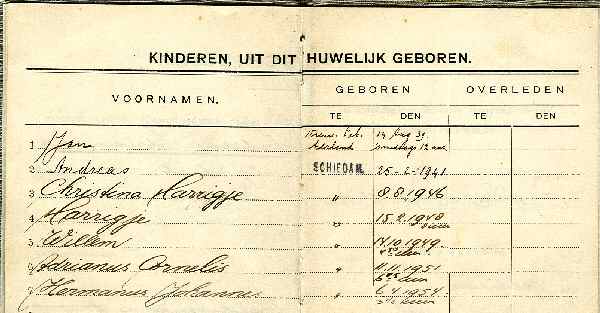 KINDEREN, UIT DIT HUWELIJK GEBOREN.
VOORNAMEN. GEBOREN OVERLEDEN
TE DEN TE DEN
1 Jan 14 Aug 39
12 uur
2 Andreas SCHIEDAM. 25-2-1941
3 Christina Harrigje " 8.8.1946
4 Harrigje " 15.2.1948
5 Willem " 14.10.1949
6 Adrianus Cornelis " 11.11.1951
7 Hermanus Johannus " 6.4.1954